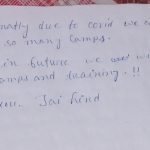 due to covid we c
so many camps.
in future we
camps and training . !!
Jai Hind